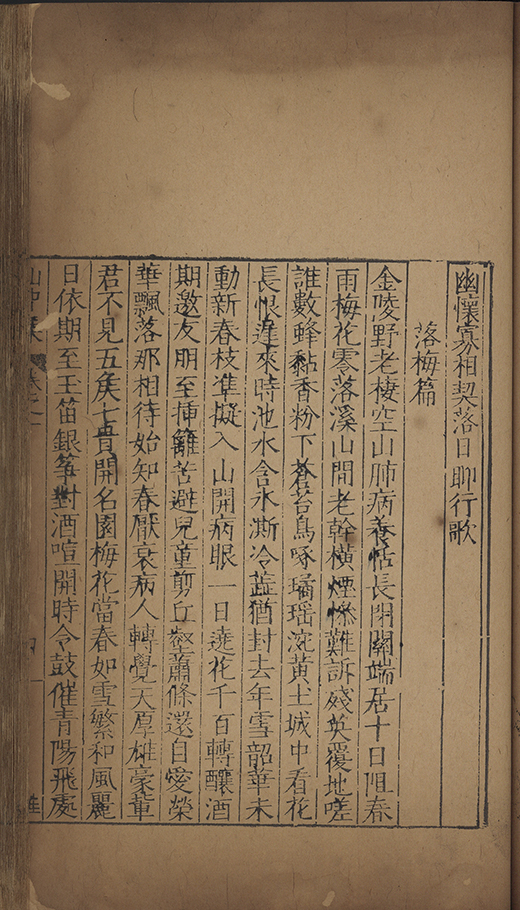 幽懷寡相契落日聊行歌
落梅篇
金陵野老棲空山肺病養恬長閉關端居十日阻春
雨梅花零落溪山間老幹橫煙慘難訴殘英覆地嗟
誰數蜂黏香粉下蒼苔鳥啄璚瑶涴黃土城中看花
長恨遲來時池水含氷澌冷蕋猶封去年雪韶華未
動新春枝準擬入山開病眼一日遶花千百轉釀酒
期邀友朋至揷籬苦避兒童剪丘壑蕭條還自愛榮
華飄落那相待始知春厭衰病人轉覺天厚雄豪輩
君不見五侯七貴開名園梅花當春如雪繁和風麗
日依期至玉笛銀箏對酒喧開時令鼓催青陽飛處